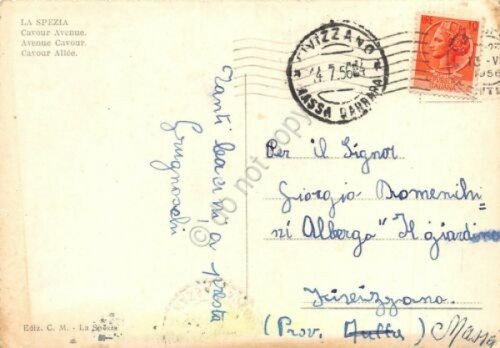 LA SPEZIA
Cavour Avenue.
Avenue Cavour.
Cavour Allée.
FIVIZZANO
4.7.56
MASSA CARRARA
Tanti bacini, a presto
Per il Signor
Giorgio Domenichi-
ni Albergo "Il giardino
Fivizzano.
(Prov. Massa
Ediz. C. M. - La Spezia
do not copy